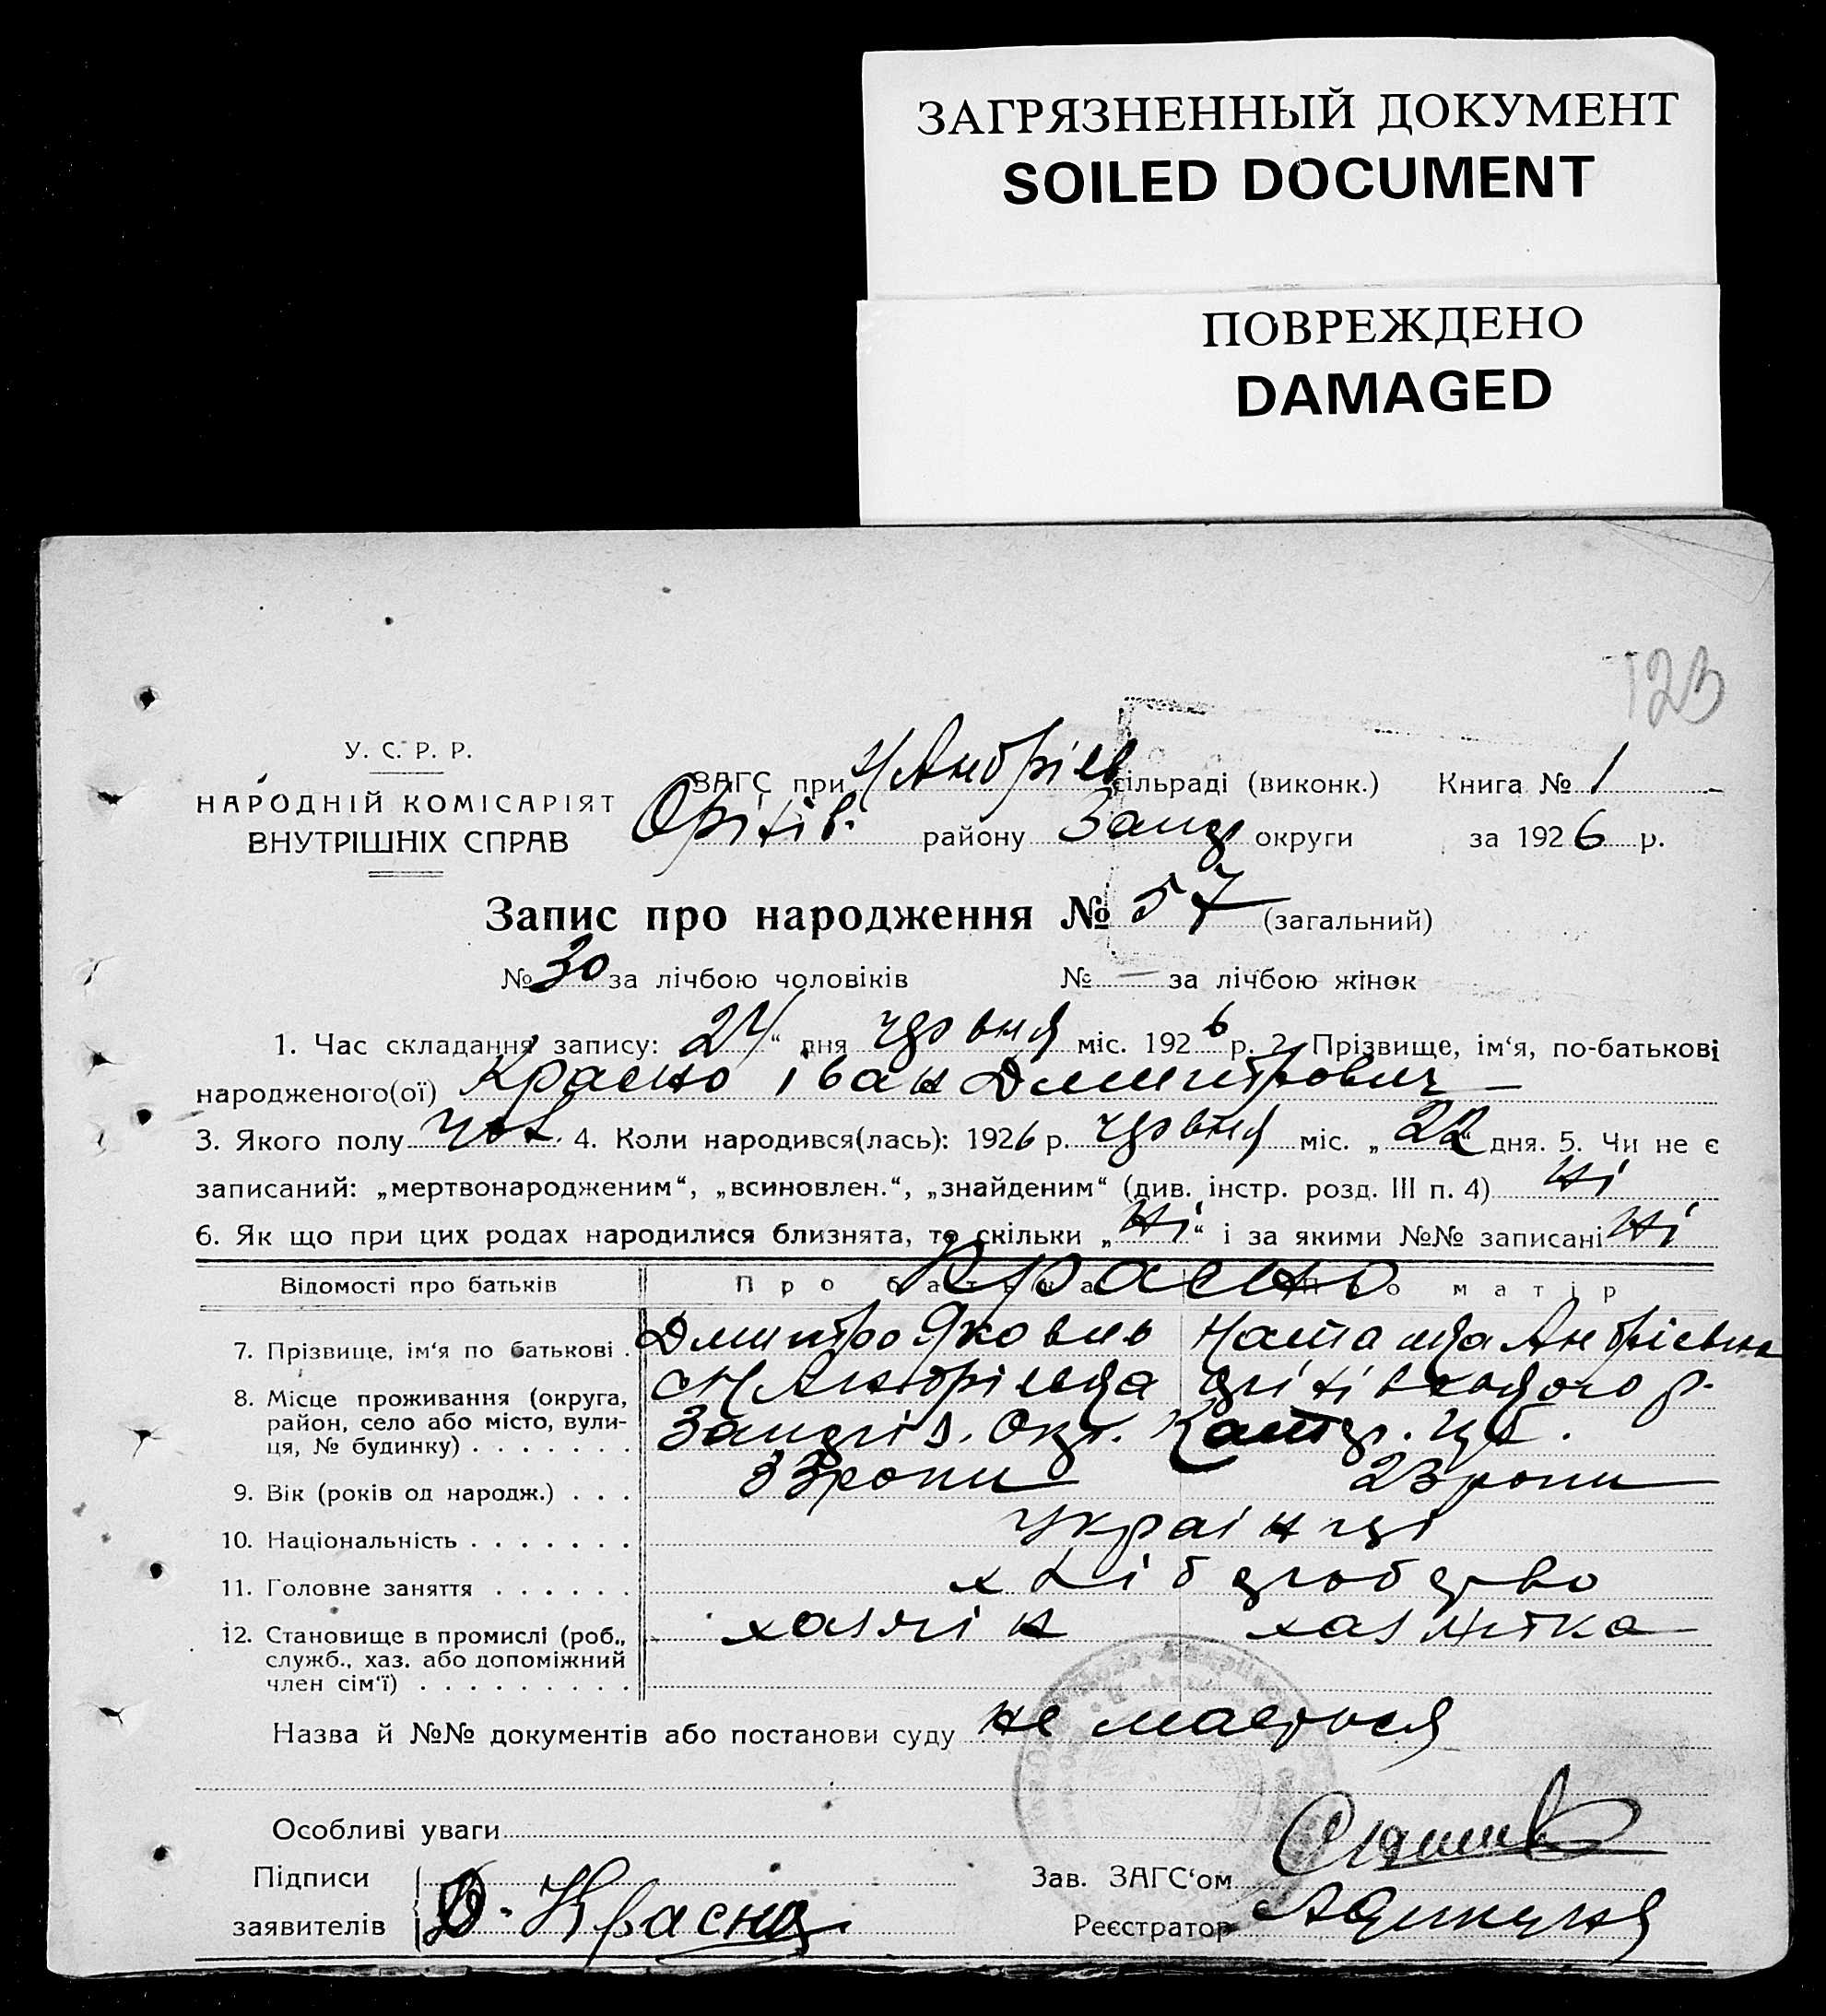 ЗАГРЯЗНЕННЫЙ ДОКУМЕНТ
SOILED DOCUMENT
ПОВРЕЖДЕНО
DAMAGED
123
У. С. Р. Р.
НАРОДНІЙ КОМІСАРІЯТ
ВНУТРІШНІХ СПРАВ
ЗАГС при Н Андрієв сільраді (виконк.) Книга № 1
Оріхів. району Запор округи за 1926 р.
Запис про народження № 57 (загальний)
№ 30 за лічбою чоловіків № — за лічбою жінок
1. Час складання запису: 24 “ дня червня міс. 1926 р. 2. Прізвище, ім‘я, по-батькові
народженого(ої) Красно Іван Дмитрович
3. Якого полу чол. 4. Коли народився(лась): 1926 р. червня міс. „ 22 “ дня. 5. Чи не є
записаний: „мертвонародженим“, „всиновлен.“, „знайденим“ (див. інстр. розд. III п. 4) ні
6. Як що при цих родах народилися близнята, то скільки „ ні “ і за якими №№ записані ні
Відомості про батьків Про батька Про матір
Красно
7. Прізвище, ім‘я по батькові . Дмитро Якович Наталія Андрієвна
8. Місце проживання (округа,
район, село або місто, вули-
ця, № будинку) . . . . . . .
9. Вік (років од народж.) . . . 33 роки 23 роки
10. Національність . . . . . . . українці
11. Головне заняття . . . . . . хліборобство
12. Становище в промислі (роб.,
служб., хаз. або допоміжний
член сім‘ї) . . . . . . . . .
хазяїн хазяйка
Назва й №№ документів або постанови суду не мається
Особливі уваги
Підписи
заявителів Д. Красно
Зав. ЗАГС‘ом
Реєстратор